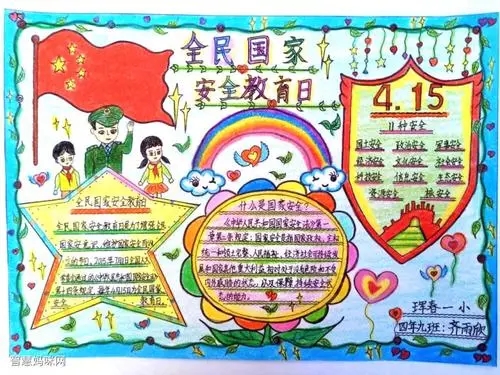 全民国家
安全教育日
4.15
11种安全
国土安全 政治安全 军事安全
经济安全 文化安全 社会安全
科技安全 信息安全 生态安全
资源安全 核安全
全民国家安全教育日
全民国家安全教育日是为了增强全民
国家安全意识,维护国家安全而设
立的节日。2015年7月1日全国人大
第十四条规定,每年4月15日为全民国家
安全教育日。
什么是国家安全?
《中华人民共和国国家安全法》第一
章第二条规定:国家安全是指国家政权、主权、
统一和领土完整、人民福祉、经济社会可持续发
展和国家其他重大利益相对处于没有危险和不受
内外威胁的状态,以及保障持续安全状
态的能力。
珲春一小
四年九班:齐雨欣
智慧妈咪网